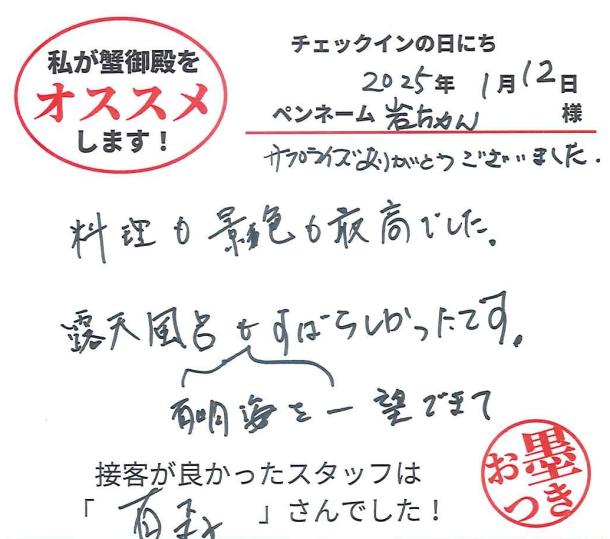 私が蟹御殿を
オススメ
します！
チェックインの日にち
2025年 1月12日
ペンネーム 岩ちゃん 様
サプライズありがとうございました.
料理も景色も最高でした。
露天風呂もすばらしかったです。
有明海を一望できて
接客が良かったスタッフは
「 」さんでした！
お墨
つき